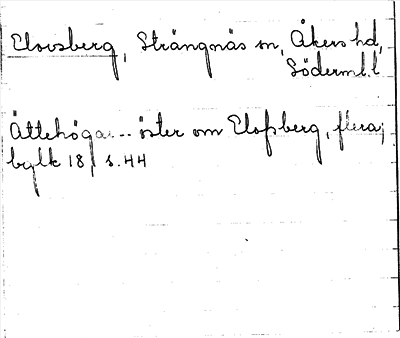 Elovsberg, Strängnäs sn, Åkers hd,
Söderml.l
Ättehögar.. öster om Elofsberg, flera;
bylk 18, s.44